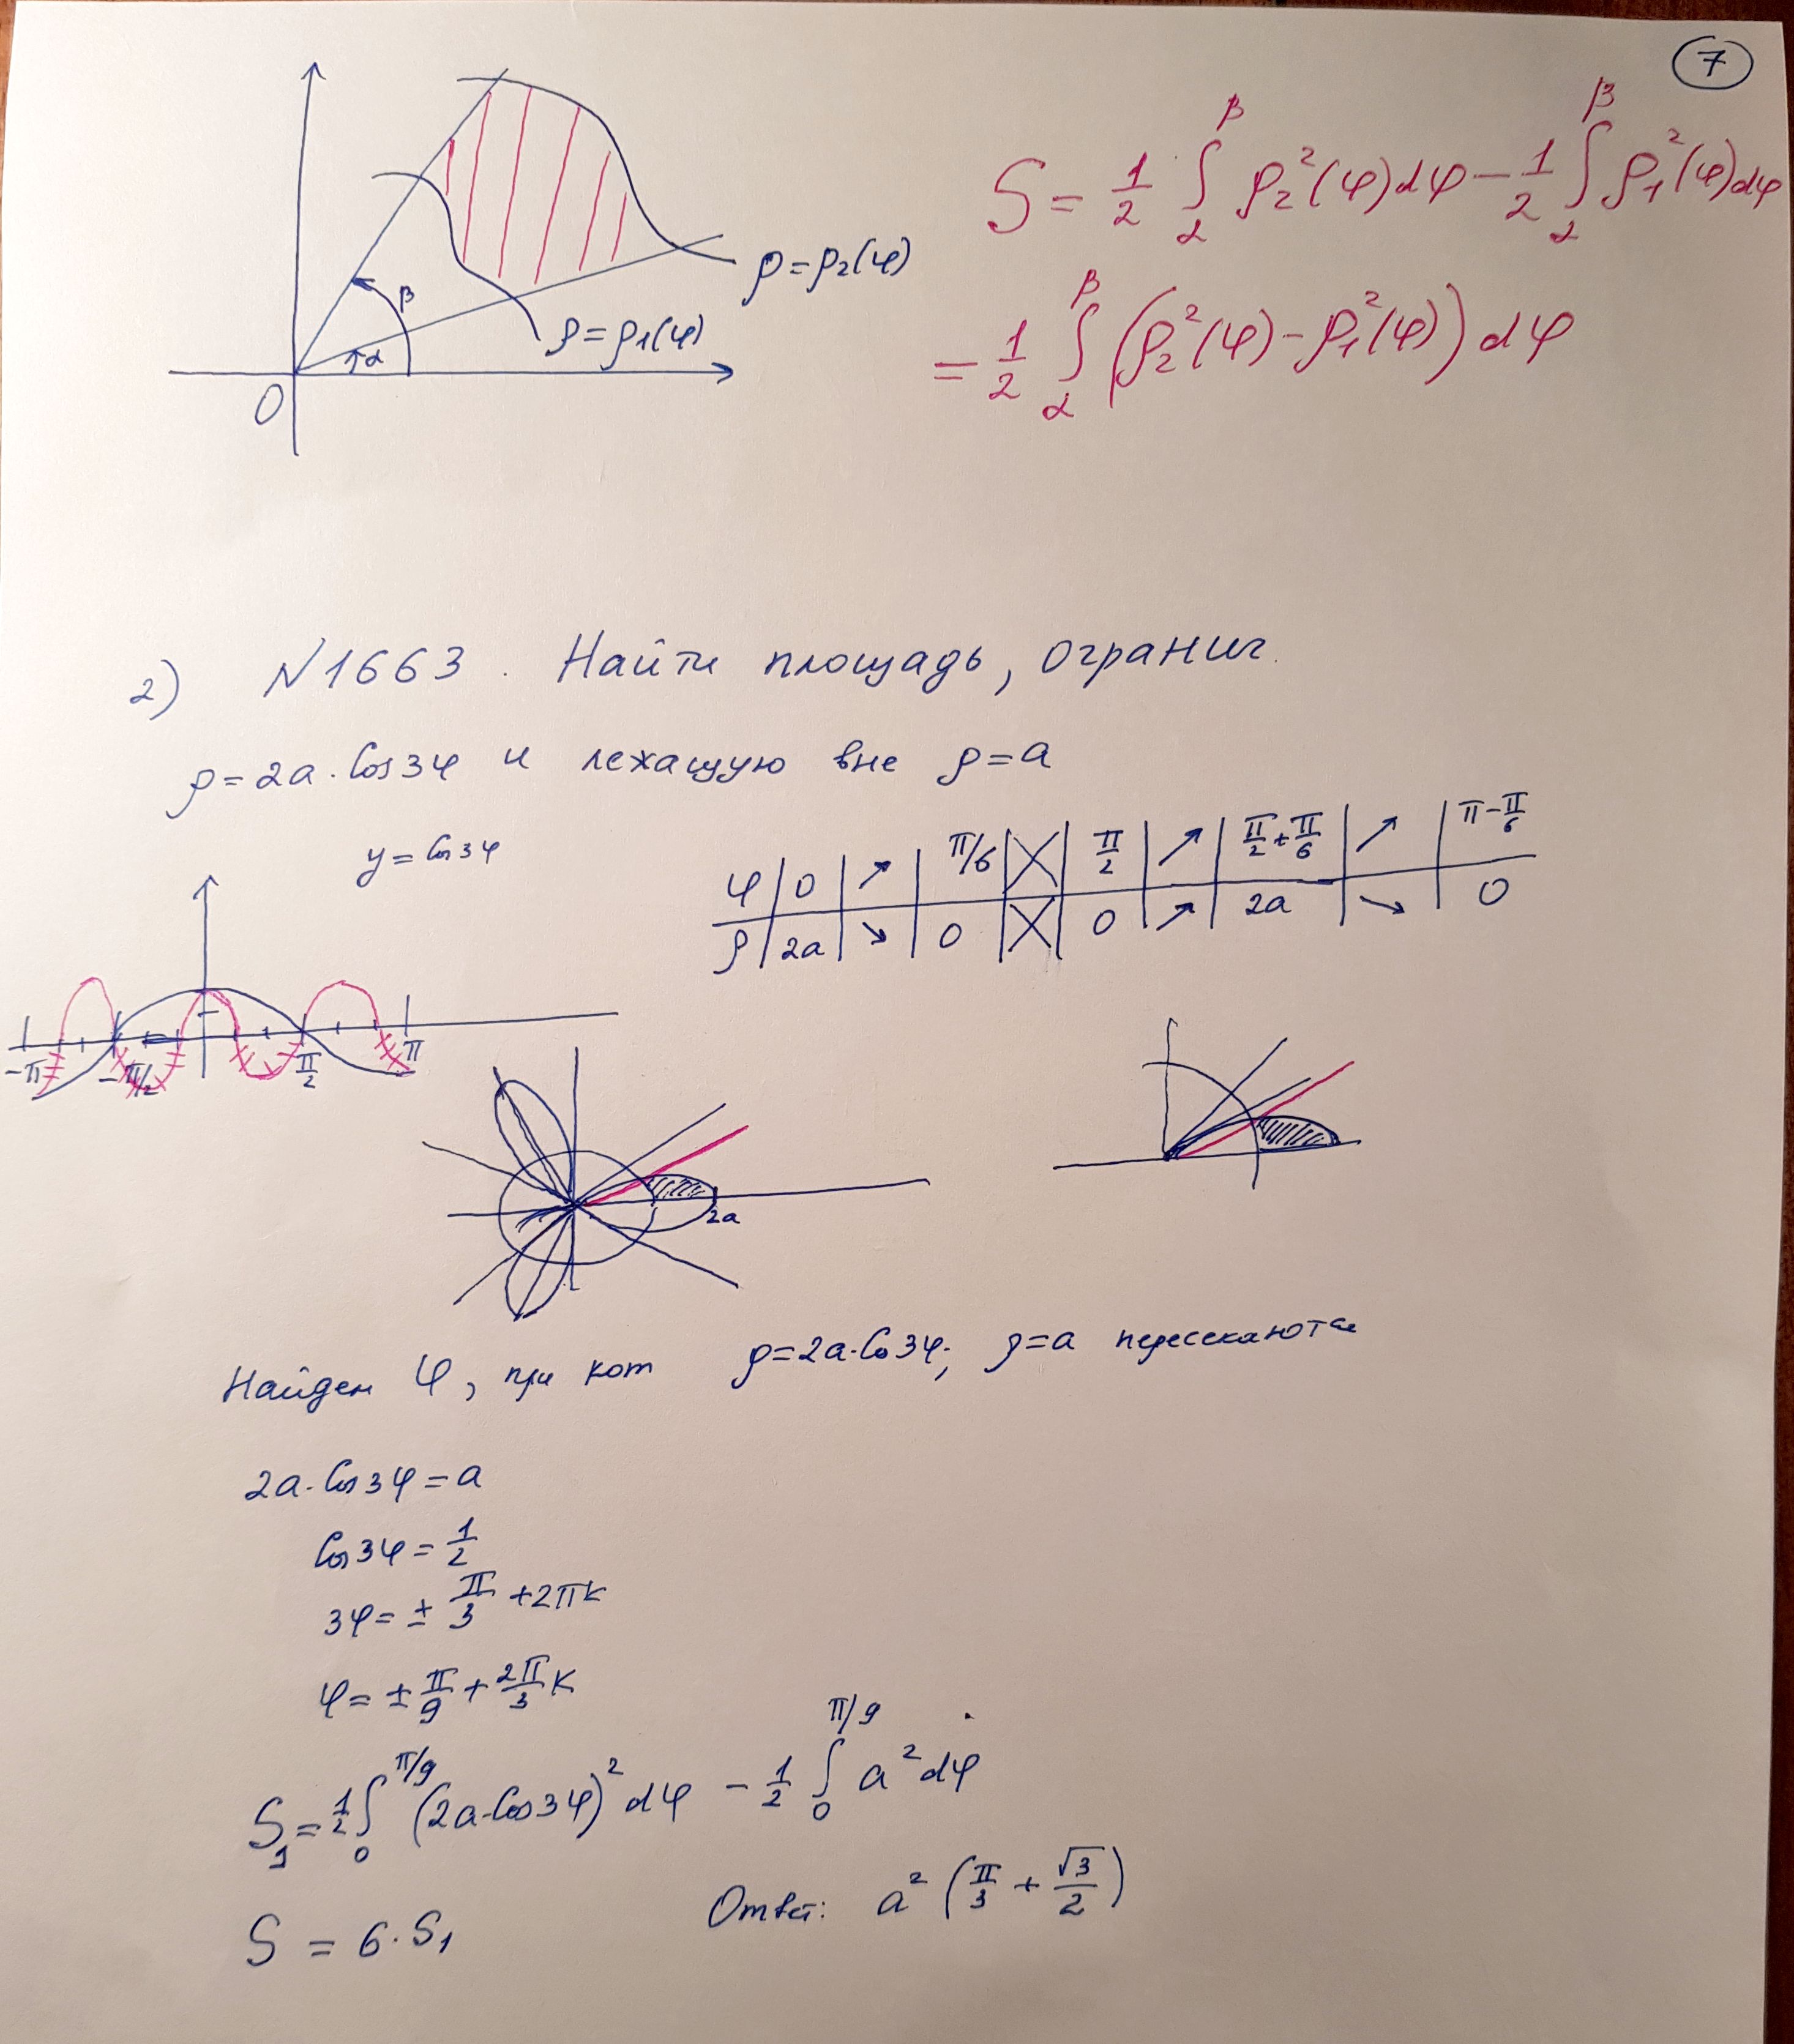 7
S = 1/2 ∫_α^β ρ₂²(φ)dφ − 1/2 ∫_α^β ρ₁²(φ)dφ
= 1/2 ∫_α^β (ρ₂²(φ) − ρ₁²(φ)) dφ
β
α
ρ=ρ₂(φ)
ρ=ρ₁(φ)
O
2) N1663. Найти площадь, огранич.
ρ=2a·Cos3φ и лежащую вне ρ=a
y=Cos3φ
φ 0 ↗ π/6 π/2 ↗ π/2+π/6 ↗ π−π/6
ρ 2a ↘ 0 0 ↗ 2a ↘ 0
−π −π/2 π/2 π
2a
Найдем φ, при кот ρ=2a·Cos3φ; ρ=a пересекаются
2a·Cos3φ=a
Cos3φ=1/2
3φ=±π/3+2πk
φ=±π/9+2π/3 k
S₁=1/2 ∫_0^{π/9} (2a·Cos3φ)² dφ − 1/2 ∫_0^{π/9} a² dφ
S = 6·S₁
Ответ: a² (π/3 + √3/2)